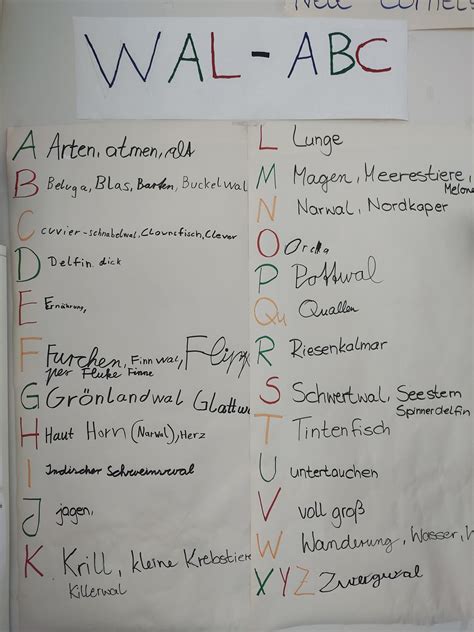 WAL-ABC
A Arten, atmen, alt
B Beluga, Blas, Barten, Buckelwal
C cuvier-schnabelwal, Clownsfisch, Clever
D Delfin. dick
E Ernährung,
F Furchen, Finnwal,
Fluke Finne
G Grönlandwal Glattw
H Haut Horn (Narwal), Herz
I Indischer Schweinswal
J jagen,
K Krill, kleine Krebstiere
Killerwal
L Lunge
M Magen, Meerestiere,
Melone
N Narwal, Nordkaper
O Orca
P Pottwal
Qu Quallen
R Riesenkalmar
S Schwertwal, Seestern
Spinnerdelfin
T Tintenfisch
U untertauchen
V voll groß
W Wanderung, Wasser, W
XYZ Zwergwal